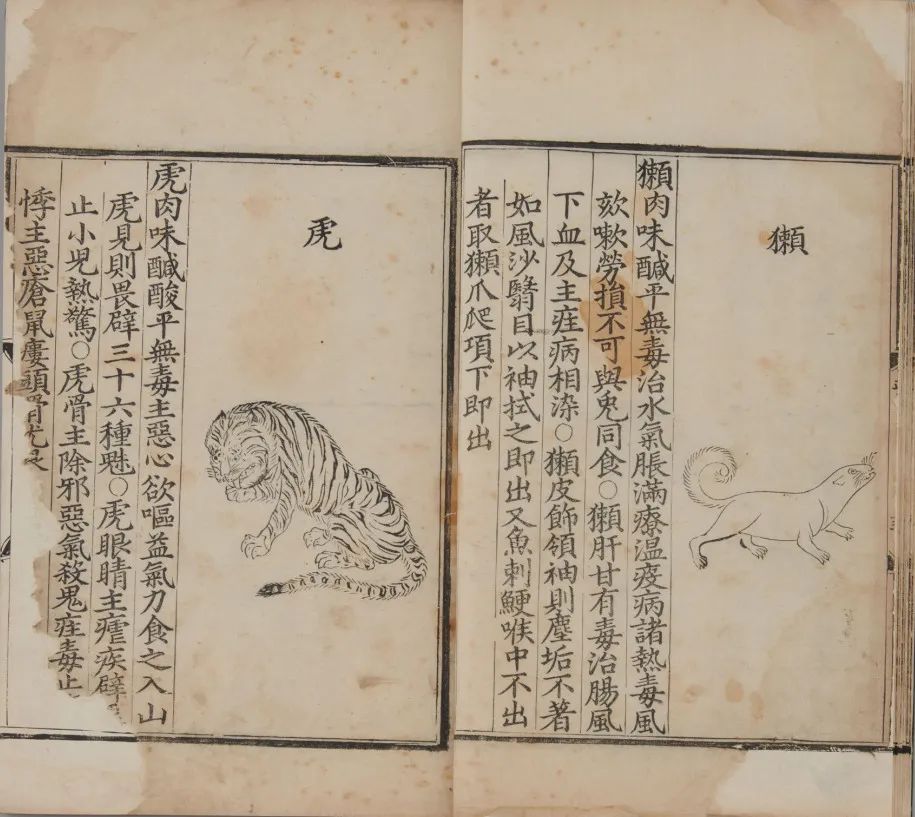 獺
獺肉味醎平無毒治水氣脹滿療温疫病諸熱毒風
欬嗽勞損不可與兎同食○獺肝甘有毒治腸風
下血及主疰病相染○獺皮飾領袖則塵垢不著
如風沙翳目以袖拭之即出又魚刺鯁喉中不出
者取獺爪爬項下即出
虎
虎肉味醎酸平無毒主惡心欲嘔益氣力食之入山
虎見則畏辟三十六種魅○虎眼睛主瘧疾辟
止小児熱驚○虎骨主除邪惡氣殺鬼疰毒止
悸主惡瘡鼠瘻頭骨尤